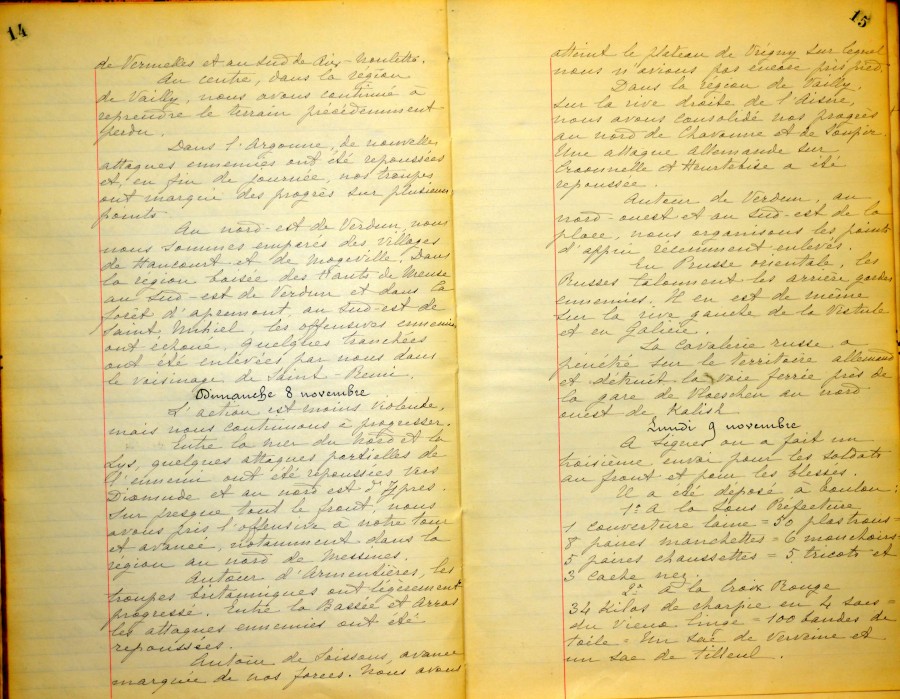 14
de Vermelles et au sud de Aix-Noulette.
Au centre, dans la région
de Vailly, nous avons continué à
reprendre le terrain précédemment
perdu.
Dans l'Argonne, de nouvelles
attaques ennemies ont été repoussées
et, en fin de journée, nos troupes
ont marqué des progrès sur plusieurs
points.
Au nord-est de Verdun, nous
nous sommes emparés des villages
de Haucourt et de Mogeville. Dans
la région boisée des Hauts de Meuse
au sud-est de Verdun et dans la
forêt d'apremont, au sud-est de
Saint Mihiel, les offensives ennemies
ont échoué. Quelques tranchées
ont été enlevées par nous dans
le voisinage de Saint-Remi.
Dimanche 8 novembre
L'action est moins violente,
mais nous continuons à progresser.
Entre la mer du Nord et la
Lys, quelques attaques partielles de
l'ennemi ont été repoussées vers
Dixmude et au nord est d'Ypres.
Sur presque tout le front, nous
avons pris l'offensive à notre tour
et avancé, notamment dans la
région au nord de Messines.
Autour d'Armentières, les
troupes britanniques ont légèrement
progressé. Entre la Bassée et Arras
les attaques ennemies ont été
repoussées.
Autour de Soissons, avance
marquée de nos forces. Nous avons
15
atteint le plateau de Vrégny sur lequel
nous n'avions pas encore pris pied.
Dans la région de Vailly,
sur la rive droite de l'Aisne,
nous avons consolidé nos progrès
au nord de Chavonne et de Soupir.
Une attaque allemande sur
Craonnelle et Heurtebise a été
repoussée.
Autour de Verdun, au
nord-ouest et au sud-est de la
place, nous organisons les points
d'appui récemment enlevés.
En Prusse orientale, les
Russes talonnent les arrière gardes
ennemies. Il en est de même
sur la rive gauche de la Vistule
et en Galicie.
La cavalerie russe a
pénétré sur le territoire allemand
et détruit la voie ferrée près de
la gare de Ploeschen au nord
ouest de Kalish
Lundi 9 novembre
A Signes on a fait un
troisième envoi pour les soldats
au front et pour les blessés.
Il a été déposé à Toulon:
1º A la Sous Préfecture
1 couverture laine = 50 plastrons =
8 paires manchettes = 6 mouchoirs =
5 paires chaussettes = 5 tricots et
3 cache nez.
2º A la Croix Rouge
34 kilos de charpie en 4 sacs =
du vieux linge = 100 bandes de
toile = Un sac de Verveine et
un sac de Tilleul.